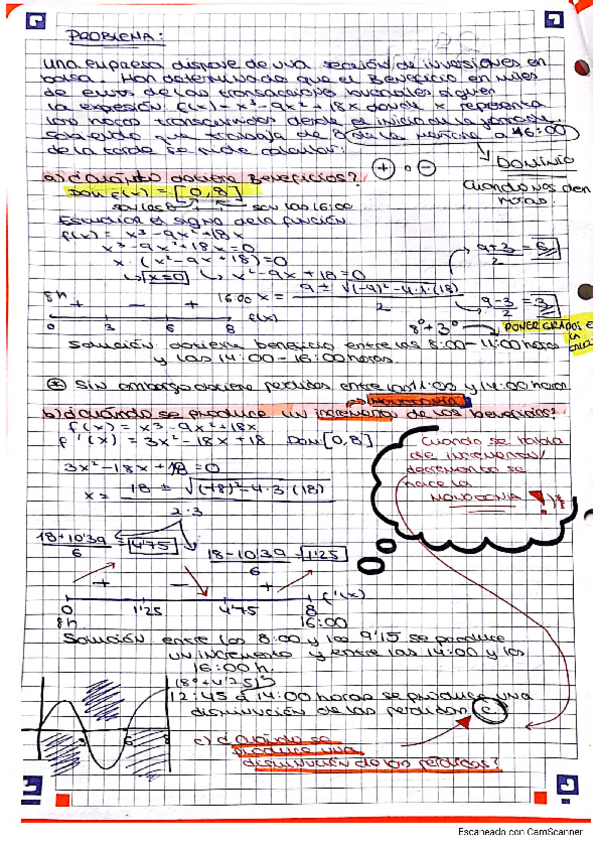 PROBLEMA:
Una empresa dispone de una sección de inversiones en
bolsa. Han determinado que el Beneficio en miles
de euros de las transacciones siguen
la expresión f(x) = x³-9x²+18x donde x representa
las horas transcurridas desde el inicio de la jornada.
Sabiendo que trabaja de 8 de la mañana a 16:00
de la tarde se pide calcular:
DOMINIO
Cuando nos den
horas.
a) ¿Cuánto obtiene Beneficios?
+ o -
Dom f(x) = [0,8]
son las 8 son las 16:00
Estudiar el signo de la función
f(x) = x³-9x²+18x
x³-9x²+18x=0
x·(x²-9x+18)=0
x=0 x²-9x+18=0
x = 9 ± √(-9)²-4·1·(18) / 2
9+3 / 2 = 6
9-3 / 2 = 3
8h + - + 16:00
0 3 6 8 f(x)
8°+3° PONER GRADOS E
Solución obtiene beneficio entre las 8:00-11:00 horas
y las 14:00-16:00 horas.
Sin embargo obtiene perdidas entre las 11:00 y 14:00 horas
MONOTONÍA
b) ¿Cuándo se produce un incremento de los beneficios?
f(x) = x³-9x²+18x
f'(x) = 3x²-18x+18 Dom [0,8]
3x²-18x+18=0
x = 18 ± √(-18)²-4·3·(18) / 2·3
Cuando se habla
de incremento/
decremento se
hace la
MONOTONIA !
18+10'39 / 6 = 4'75
18-10'39 / 6 = 1'25
+ - +
0 1'25 4'75 8 f'(x)
8h 16:00
Solución entre las 8:00 y las 9'15 se produce
un incremento y entre las 14:00 y las
16:00h.
(8°+4'25)°
12:45 a 14:00 horas se produce una
disminución de las perdidas c
3 6 8
c) ¿Cuándo se
produce una
disminución de las pérdidas?
Escaneado con CamScanner